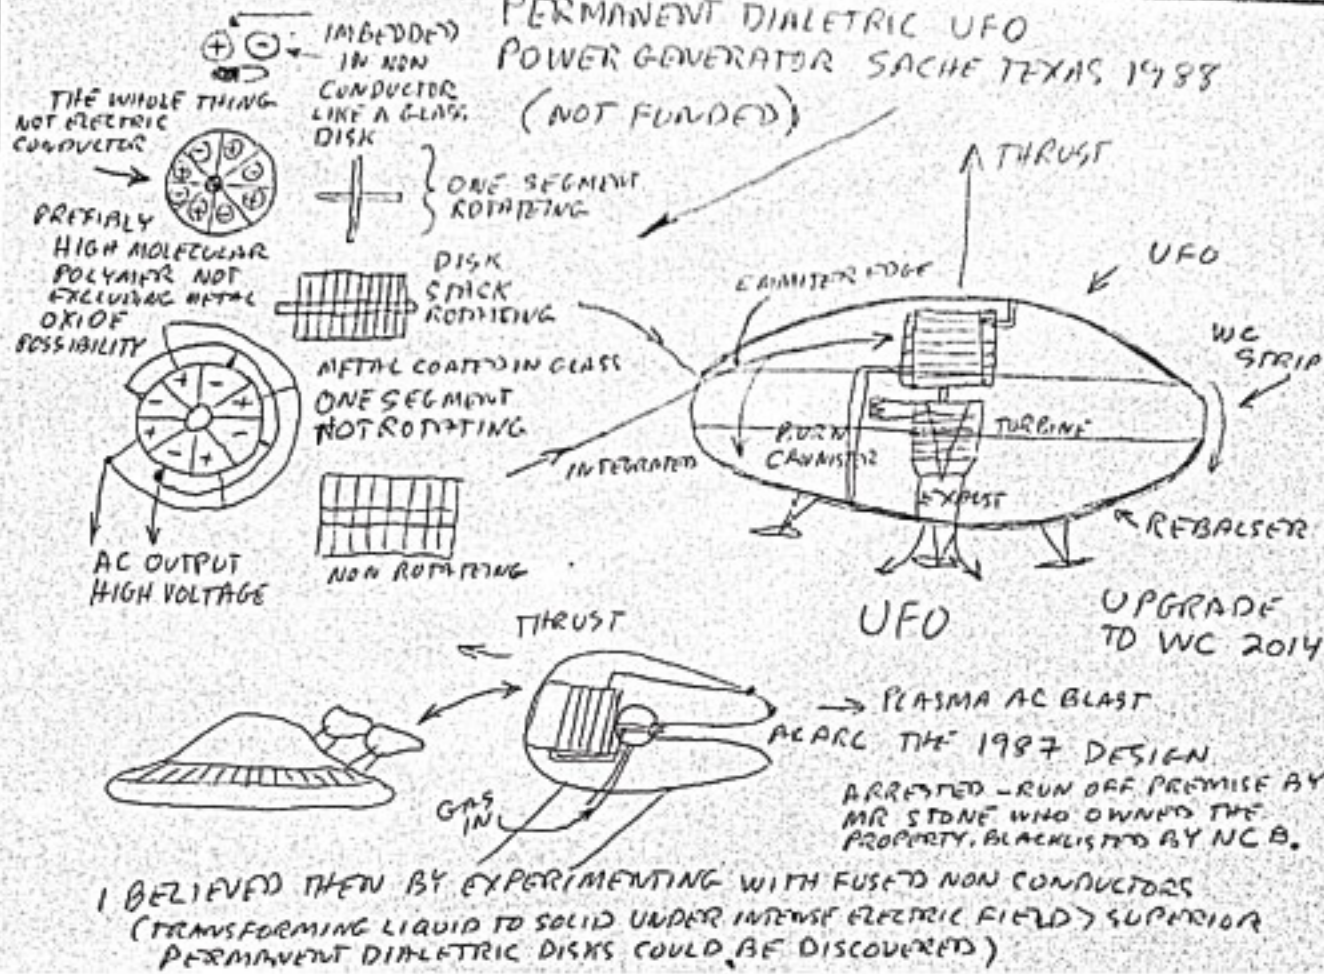 PERMANENT DIALETRIC UFO
POWER GENERATOR SACHE TEXAS 1988
(NOT FUNDED)
+ -
IMBEDDED
IN NON
CONDUCTOR
LIKE A GLASS
DISK
THE WHOLE THING
NOT ELECTRIC
CONDUCTOR
ONE SEGMENT
ROTATING
PREFIBLY
HIGH MOLECULAR
POLYMER NOT
EXCLUDING METAL
OXIDE
POSSIBILITY
DISK
STACK
ROTATING
METAL COATED IN GLASS
ONE SEGMENT
NOT ROTATING
+ - + - + - + -
AC OUTPUT
HIGH VOLTAGE
NON ROTATING
THRUST
UFO
EMMITER EDGE
WC
STRIP
INTEGRATED
BURN
CANNISTER
TURBINE
EXPUST
REBALSER
UFO
UPGRADE
TO WC 2014
THRUST
PLASMA AC BLAST
AC ARC THE 1987 DESIGN
GAS
IN
ARRESTED - RUN OFF PREMISE BY
MR STONE WHO OWNED THE
PROPERTY. BLACKLISTED BY NCB.
I BELIEVED THEN BY EXPERIMENTING WITH FUSED NON CONDUCTORS
(TRANSFORMING LIQUID TO SOLID UNDER INTENSE ELECTRIC FIELD) SUPERIOR
PERMANENT DIALETRIC DISKS COULD BE DISCOVERED)